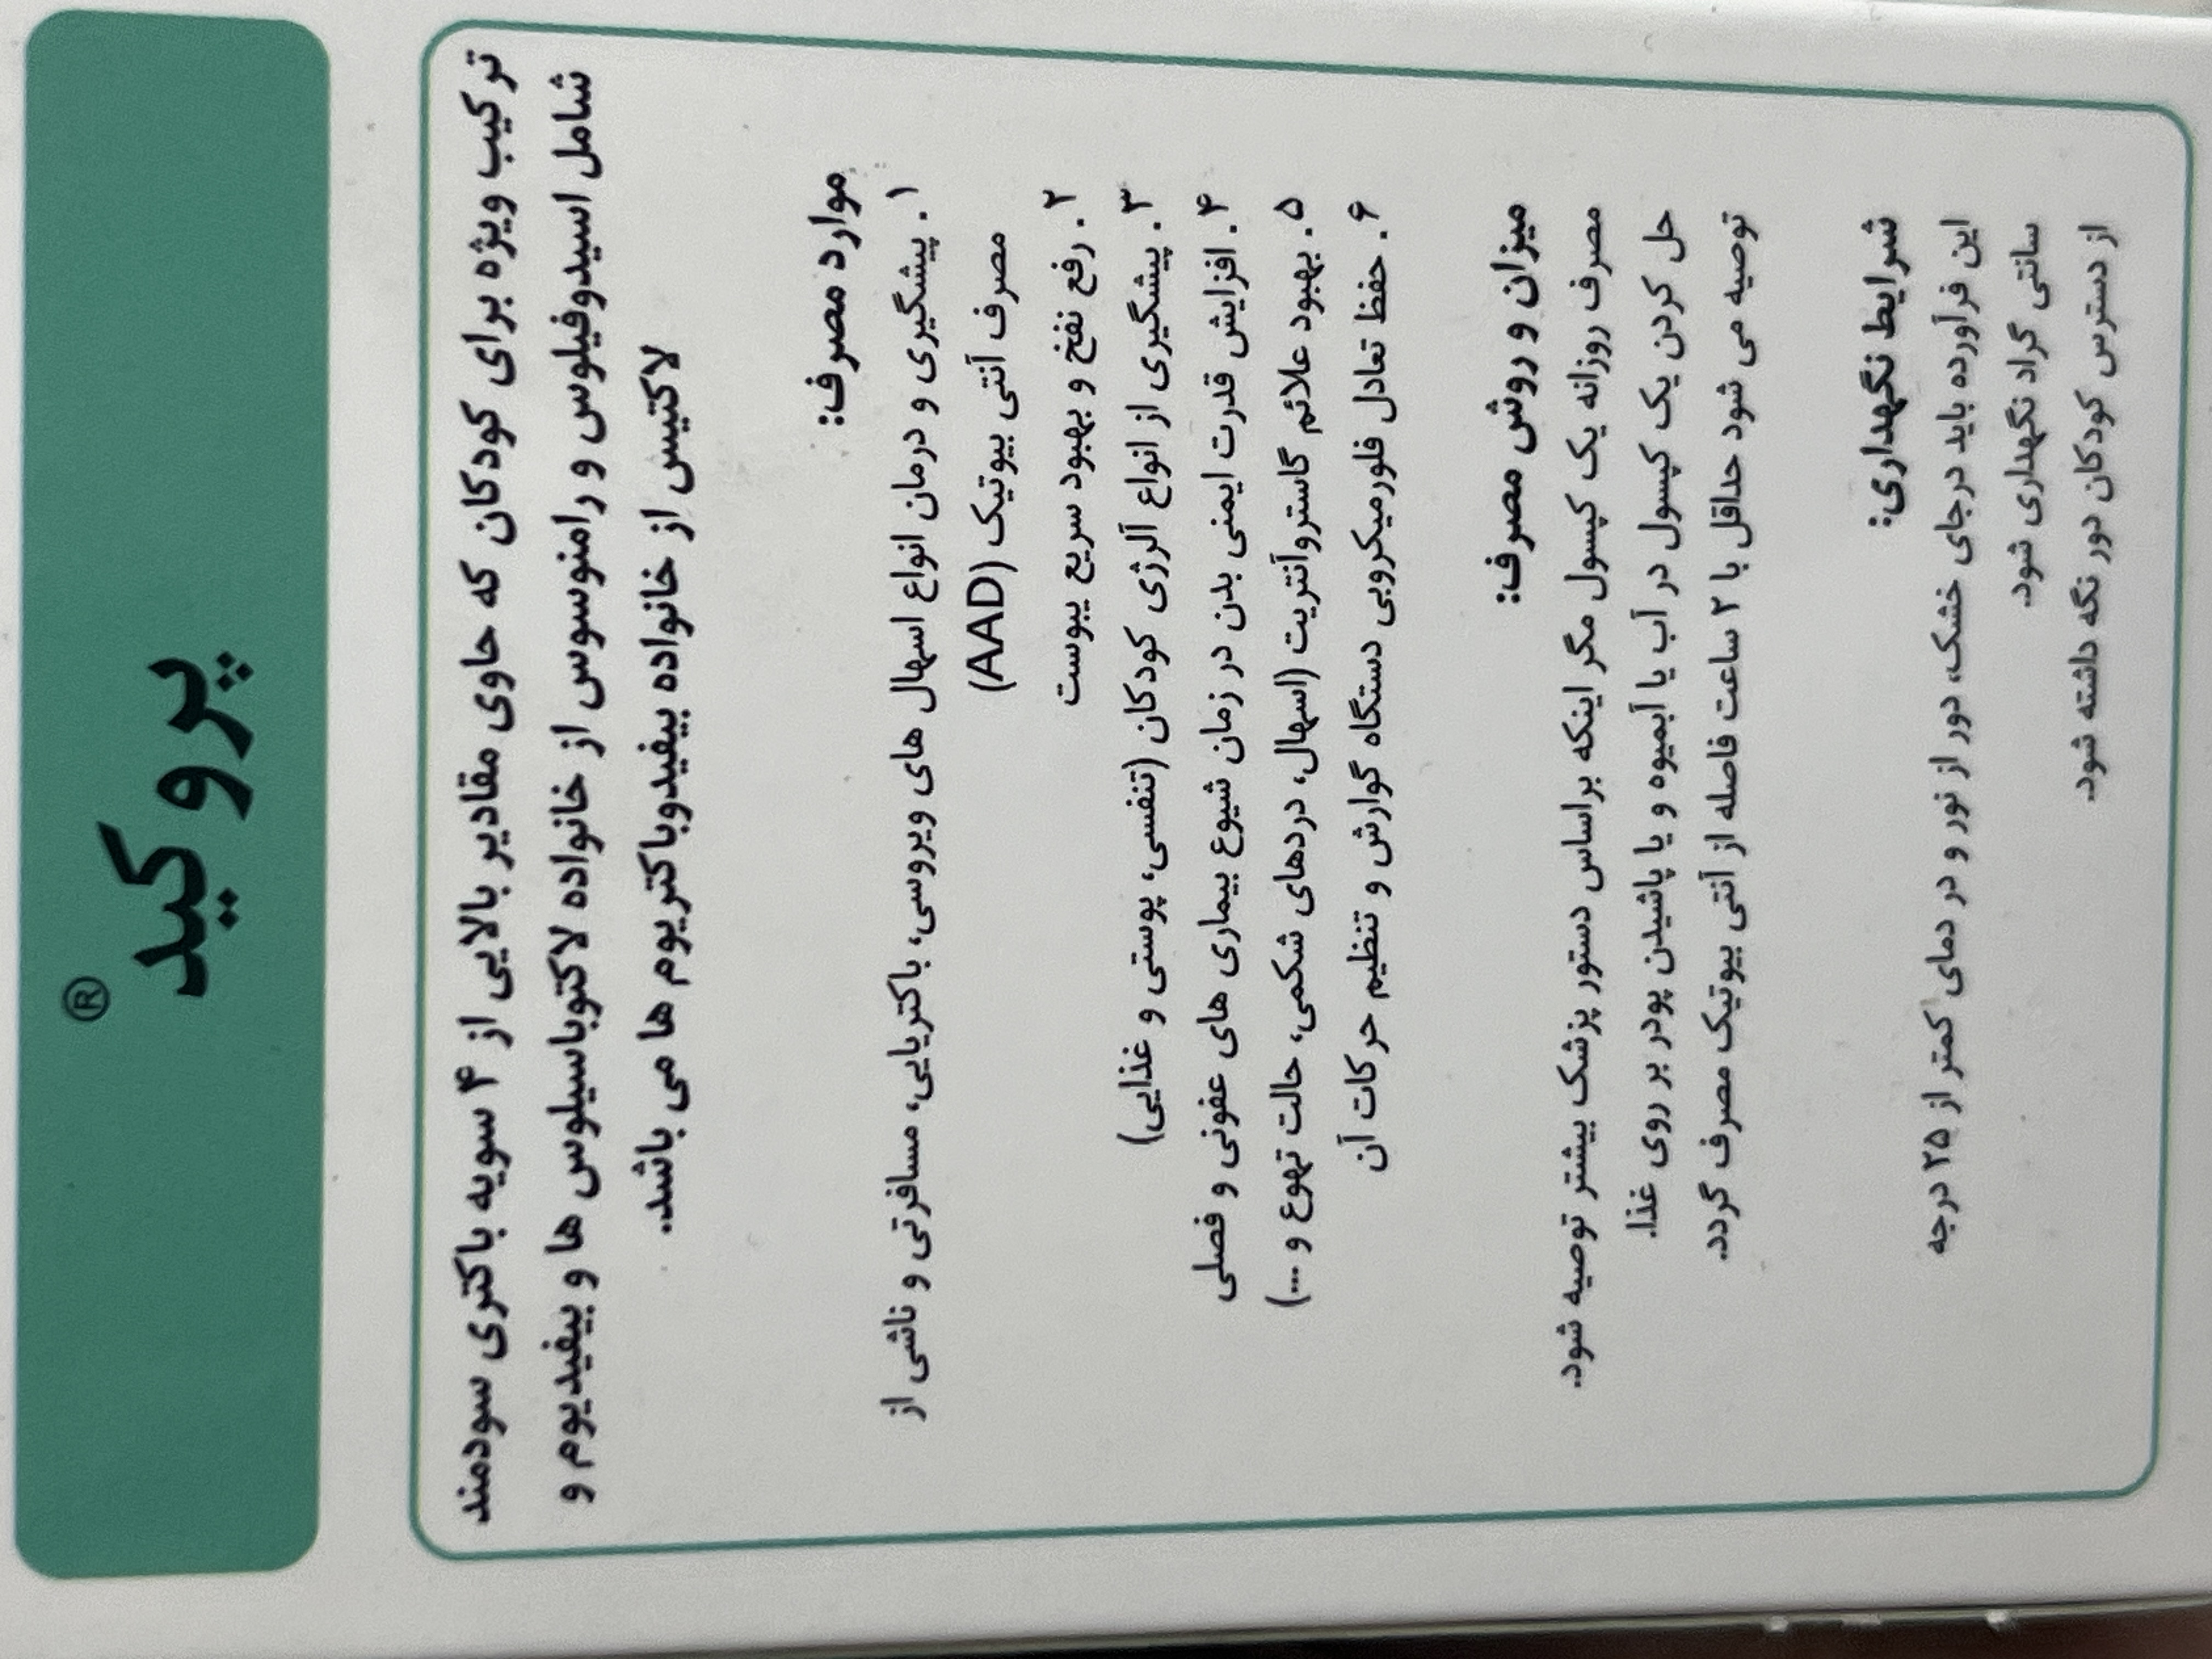 پرو کید®
ترکیب ویژه برای کودکان که حاوی مقادیر بالایی از ۴ سویه باکتری سودمند
شامل اسیدوفیلوس و رامنوسوس از خانواده لاکتوباسیلوس ها و بیفیدیوم و
لاکتیس از خانواده بیفیدوباکتریوم ها می باشد.
موارد مصرف:
۱. پیشگیری و درمان انواع اسهال های ویروسی، باکتریایی، مسافرتی و ناشی از
مصرف آنتی بیوتیک (AAD)
۲. رفع نفخ و بهبود سریع یبوست
۳. پیشگیری از انواع آلرژی کودکان (تنفسی، پوستی و غذایی)
۴. افزایش قدرت ایمنی بدن در زمان شیوع بیماری های عفونی و فصلی
۵. بهبود علائم گاستروآنتریت (اسهال، دردهای شکمی، حالت تهوع و ...)
۶. حفظ تعادل فلورمیکروبی دستگاه گوارش و تنظیم حرکات آن
میزان و روش مصرف:
مصرف روزانه یک کپسول مگر اینکه براساس دستور پزشک بیشتر توصیه شود.
حل کردن یک کپسول در آب یا آبمیوه و یا پاشیدن پودر بر روی غذا.
توصیه می شود حداقل با ۲ ساعت فاصله از آنتی بیوتیک مصرف گردد.
شرایط نگهداری:
این فرآورده باید درجای خشک، دور از نور و در دمای کمتر از ۲۵ درجه
سانتی گراد نگهداری شود.
از دسترس کودکان دور نگه داشته شود.